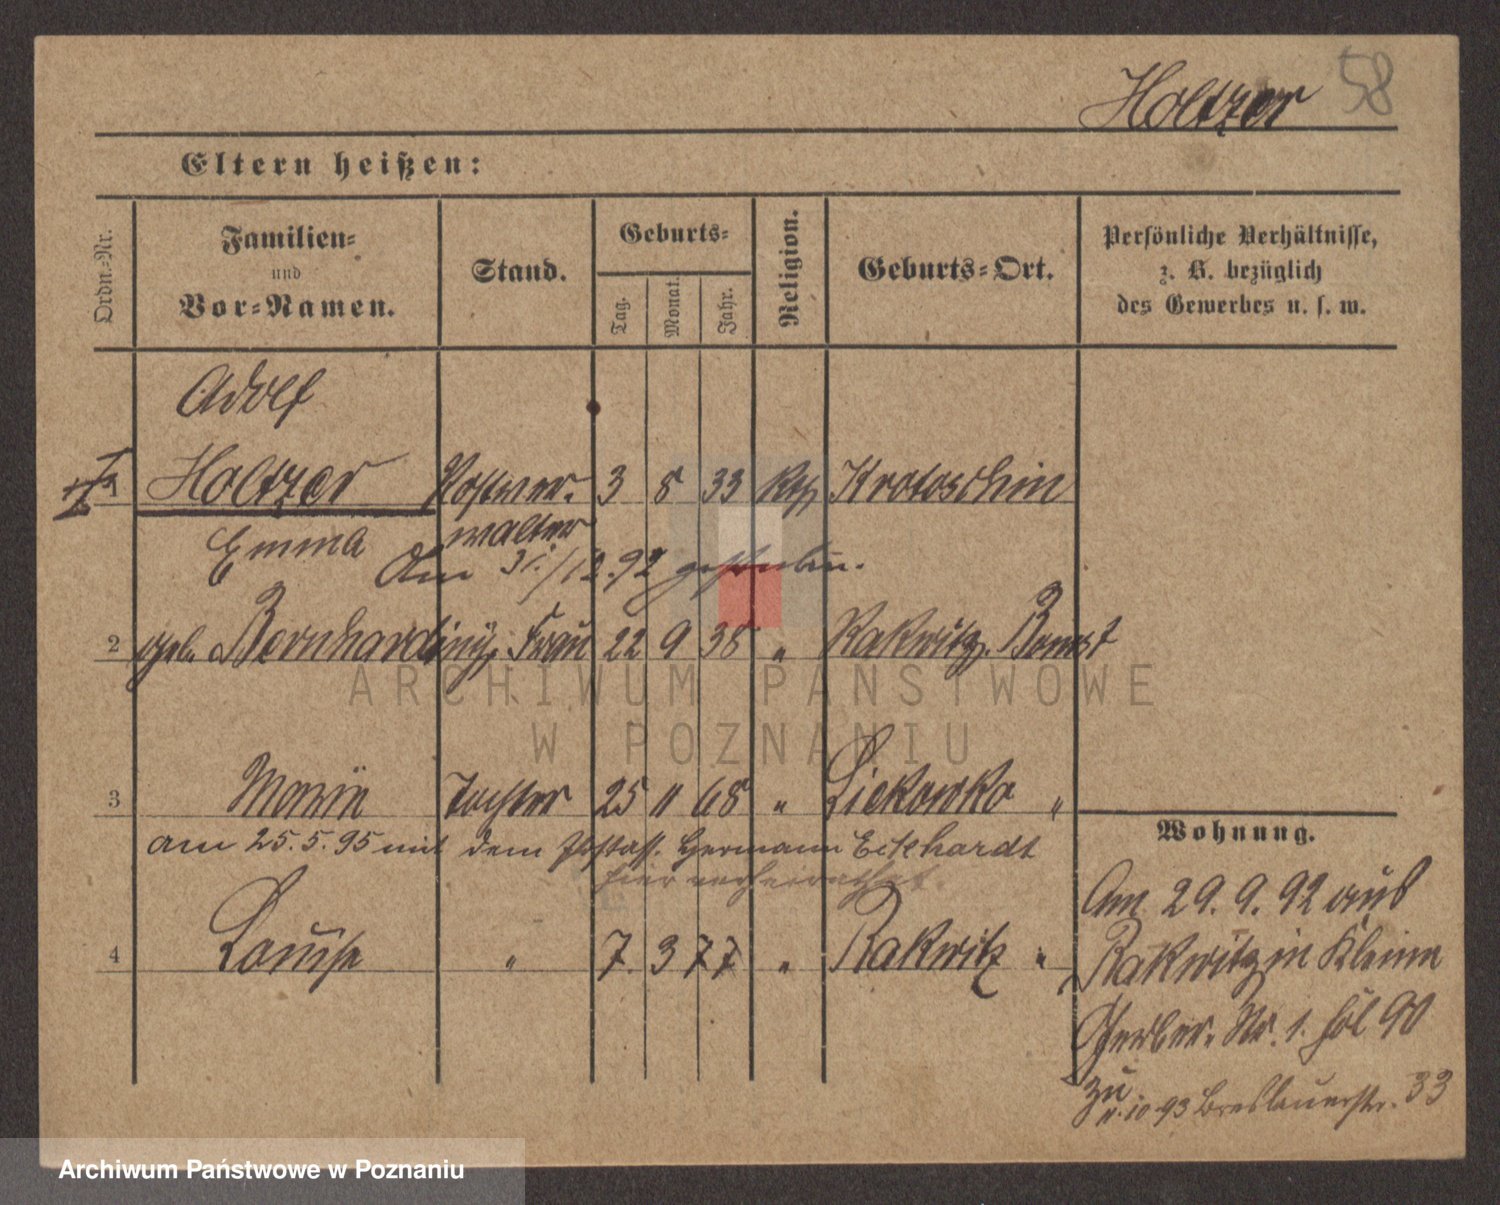 Holtzer 58
Eltern heißen:
Ordn.-Nr.
Familien-
und
Vor-Namen.
Stand.
Geburts-
Tag.
Monat.
Jahr.
Religion.
Geburts-Ort.
Persönliche Verhältnisse,
z. B. bezüglich
des Gewerbes u. s. w.
Adolf
Holtzer Postver- 3 8 33 Kth Krotoschin
Emma walter
Am 31./12.92 gestorben.
2 geb. Bernhardiny. Frau 22 9 38 " Rakwitz. Bomst
3 Marie Tochter 25 11 68 " "
am 25.5.95 mit dem Postass. Hermann Eckhardt
hier verheirathet.
4 Louise " 7. 3 77 " Rakwitz "
Wohnung.
Am 29. 9. 92 aus
Rakwitz in Kleine
Gerber. Nr. 1. bei 90
zu
11.10.93 Breslauerstr. 33
ARCHIWUM PAŃSTWOWE
W POZNANIU
Archiwum Państwowe w Poznaniu